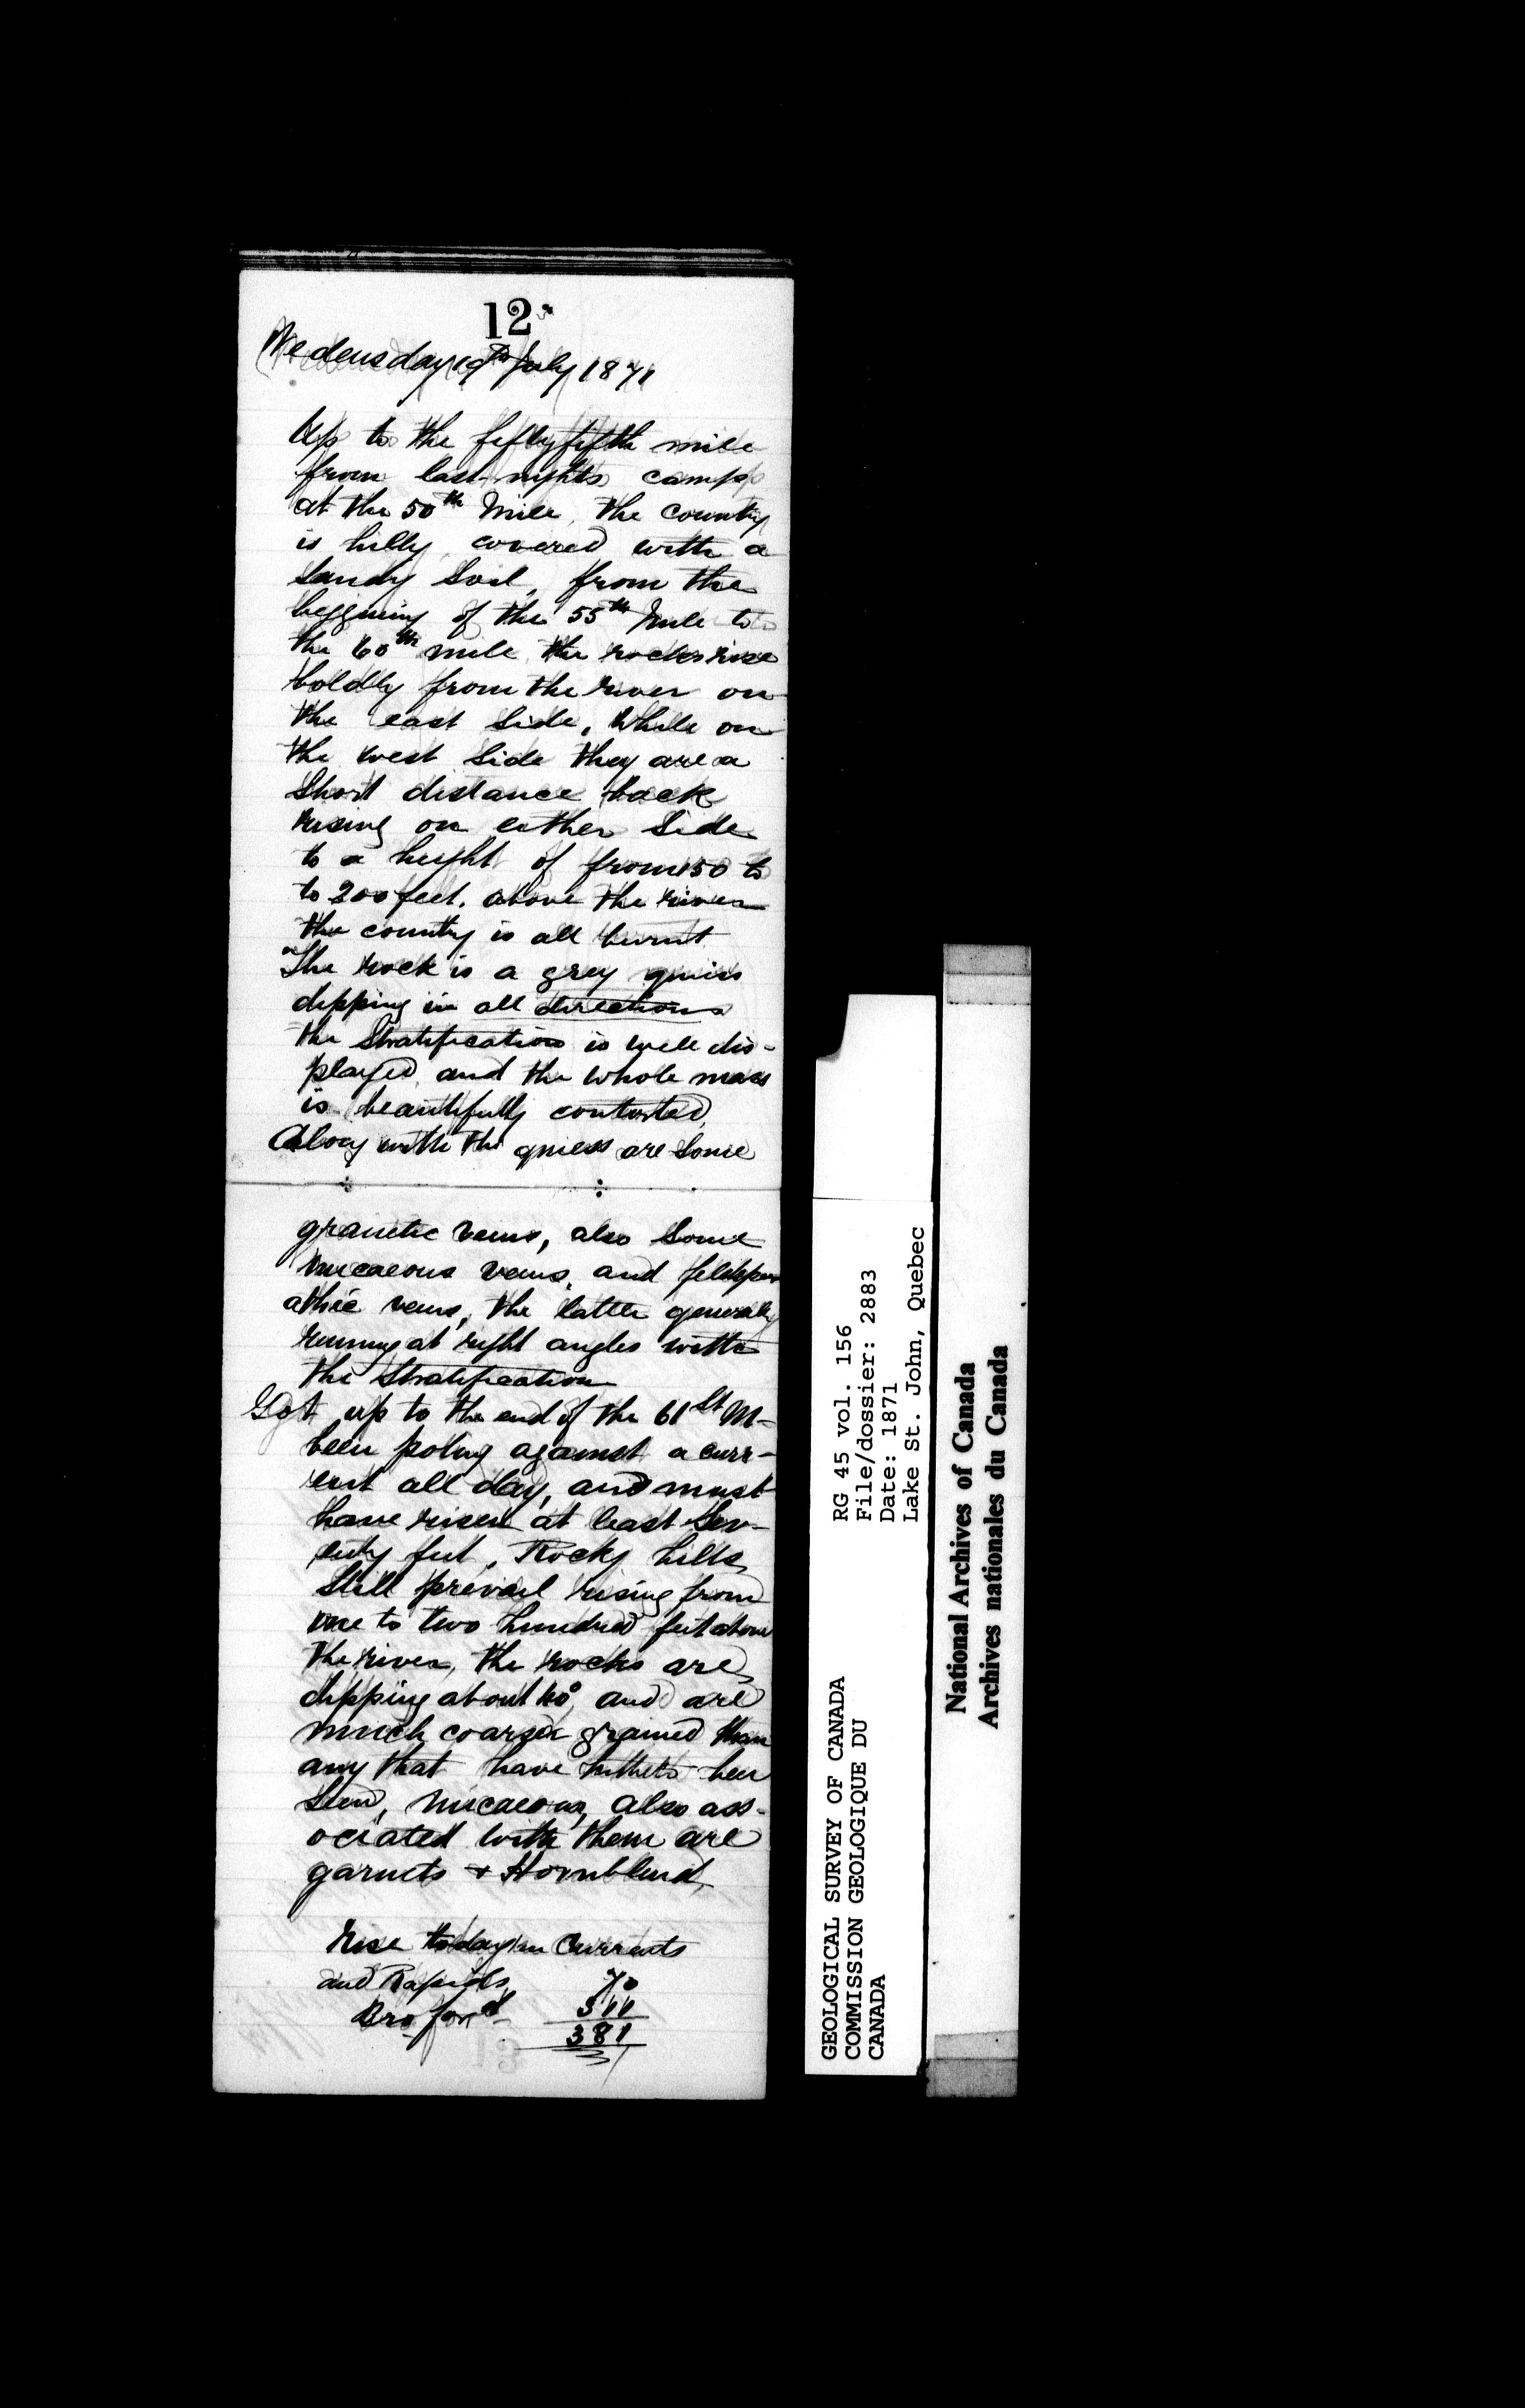 12
Wedensday 19th July 1871
Up to the fiftyfifth mile
from last nights camp
at the 50th Mile, the country
is hilly, covered with a
Sandy Soil, from the
beggining of the 55th Mile to
the 60th mile, the rocks rise
boldly from the river on
the east Side, While on
the west Side they are a
Short distance back
rising on either Side
to a height of from 150 to
to 200 feet. above the river
the country is all burnt
The rock is a grey gniess
dipping in all directions
the Stratification is well dis-
played, and the whole mass
is beautifully contorted,
Along with the gniess are Some
granitic veins, also Some
micaeous veins, and feldspar
athic veins, the latter generaly
running at right angles with
the Stratification
Got up to the end of the 61st M-
been poling against a curr-
ent all day, and must
have risen at least Sev-
enty feet, Rocky hills
Still prevail rising from
one to two hundred feet above
the river, the rocks are
dipping about 40°, and are
much coarser grained than
any that have hitherto been
Seen, micaeous, also ass-
ociated with them are
garnets + Hornblend,
Rise today in Currents
and Rapids 70
Bro ford 311
381
RG 45 vol. 156
File/dossier: 2883
Date: 1871
Lake St. John, Quebec
GEOLOGICAL SURVEY OF CANADA
COMMISSION GEOLOGIQUE DU
CANADA
National Archives of Canada
Archives nationales du Canada